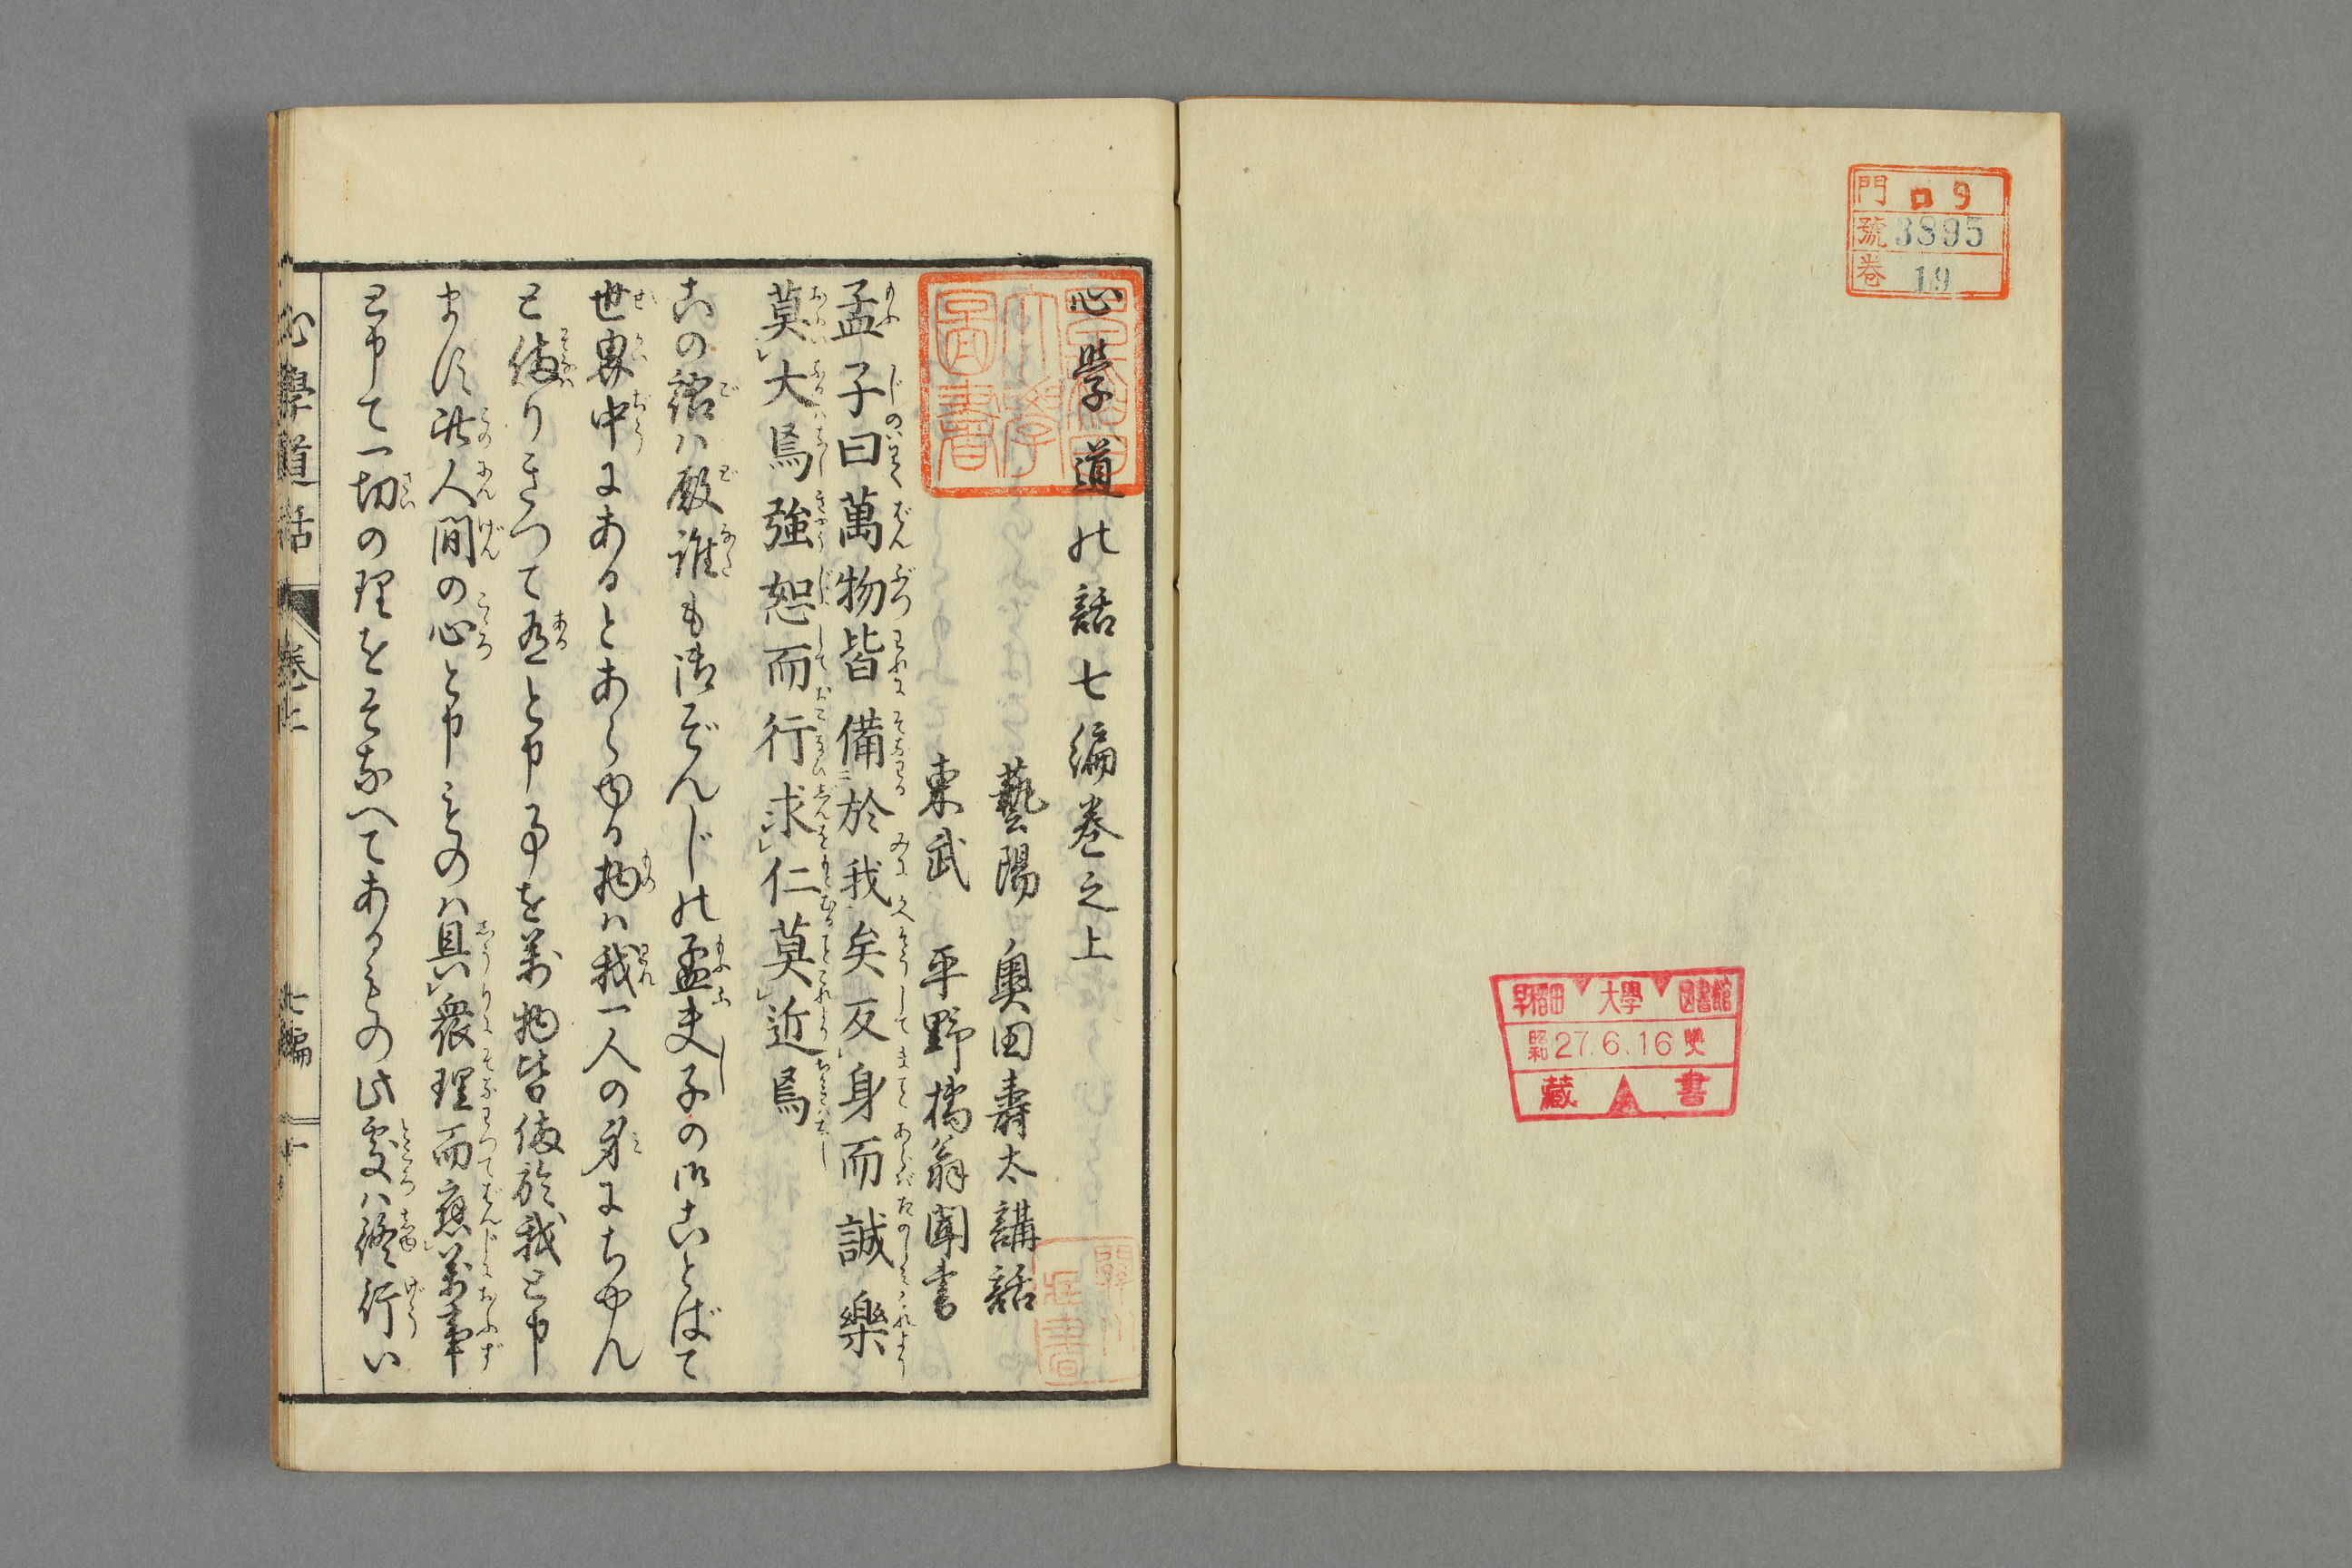 門 ロ9
號 3895
巻 19
早稻田 大學 図書館
昭和 27.6.16
藏 書
心學道の話七編巻之上
藝陽 奥田壽太講話
東武 平野橘翁聞書
孟子曰萬物皆備於我矣反身而誠樂
莫大焉強恕而行求仁莫近焉
この語ハ殿誰も御ぞんじの孟夫子の御ことばで
世界中にあるとあらゆる物ハ我一人の身にちやん
と備りきつて有と申事を萬物皆備於我と申
ます此人間の心と申ものハ具衆理而應萬事
と申て一切の理をそなへてあるもの此處ハ修行い
心學道話 巻上 七編
早稻田大學圖書